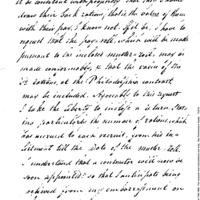 be consistent with propriety that the
draw their back rations, that is the value of them
with their pay, I know not. If it be, I have to
request that the pay-roll, which will be made
pursuant to the inclosed muster-roll, may be
made conformably, & that the value of the
rations, at the Philadelphia contract
may be included. Agreeably to this request
I take the liberty to inclose a return, stat-
ing particularly the number of rations which
has accrued to each recruit, from his in-
listment till the Date of the muster-roll.
I understand that a contractor will now be
soon appointed; so that I anticipate being
relieved from my embarrassment on